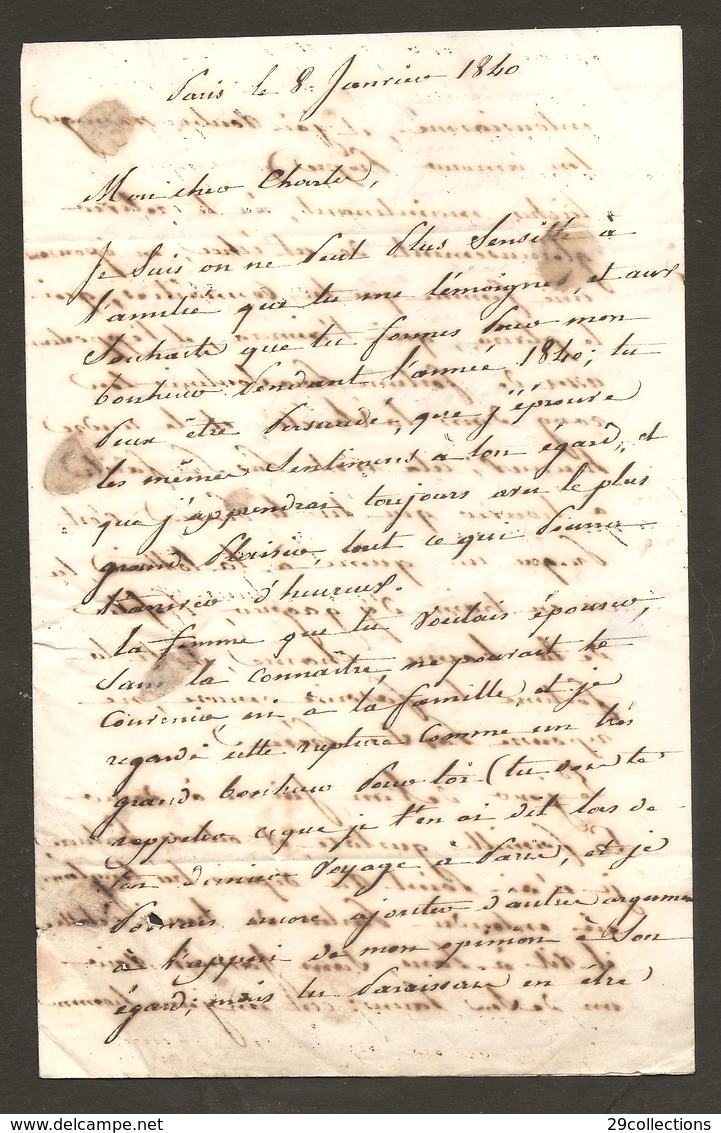 Paris le 8 Janvier 1840
Mon cher Charles,
Je suis on ne peut plus sensible à
l'amitié que tu me témoignes, et aux
souhaits que tu formes pour mon
bonheur pendant l'année 1840; tu
peux être persuadé, que j'éprouve
les mêmes sentimens à ton égard, et
que j'apprendrai toujours avec le plus
grand plaisir, tout ce qui pourra
t'arriver d'heureux.
la femme que tu voulais épouser,
sans la connaître, ne pouvait te
convenir, ni à ta famille, et je
regarde cette rupture comme un très
grand bonheur pour toi (tu dois te
rappeler ce que je t'en ai dit lors de
ton dernier voyage à Paris, et je
pourrais encore ajouter d'autres argumens
à l'appui de mon opinion à son
égard; mais tu paraissais en être
29collections
delcampe.net